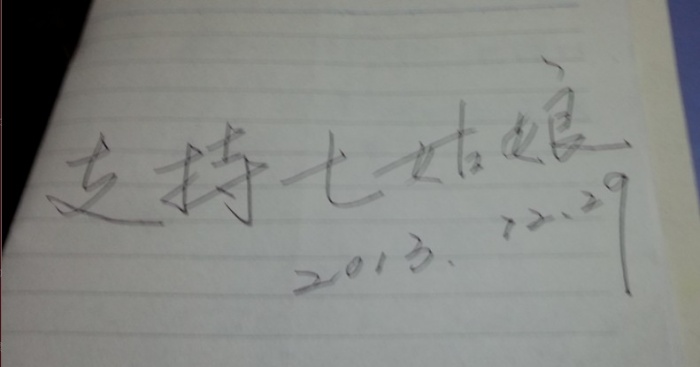 支持七姑娘
2013.12.29